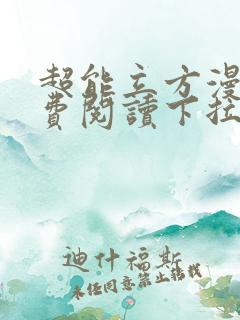 超能立方漫
費閱讀下拉
迪什福斯
未经同意禁止转载